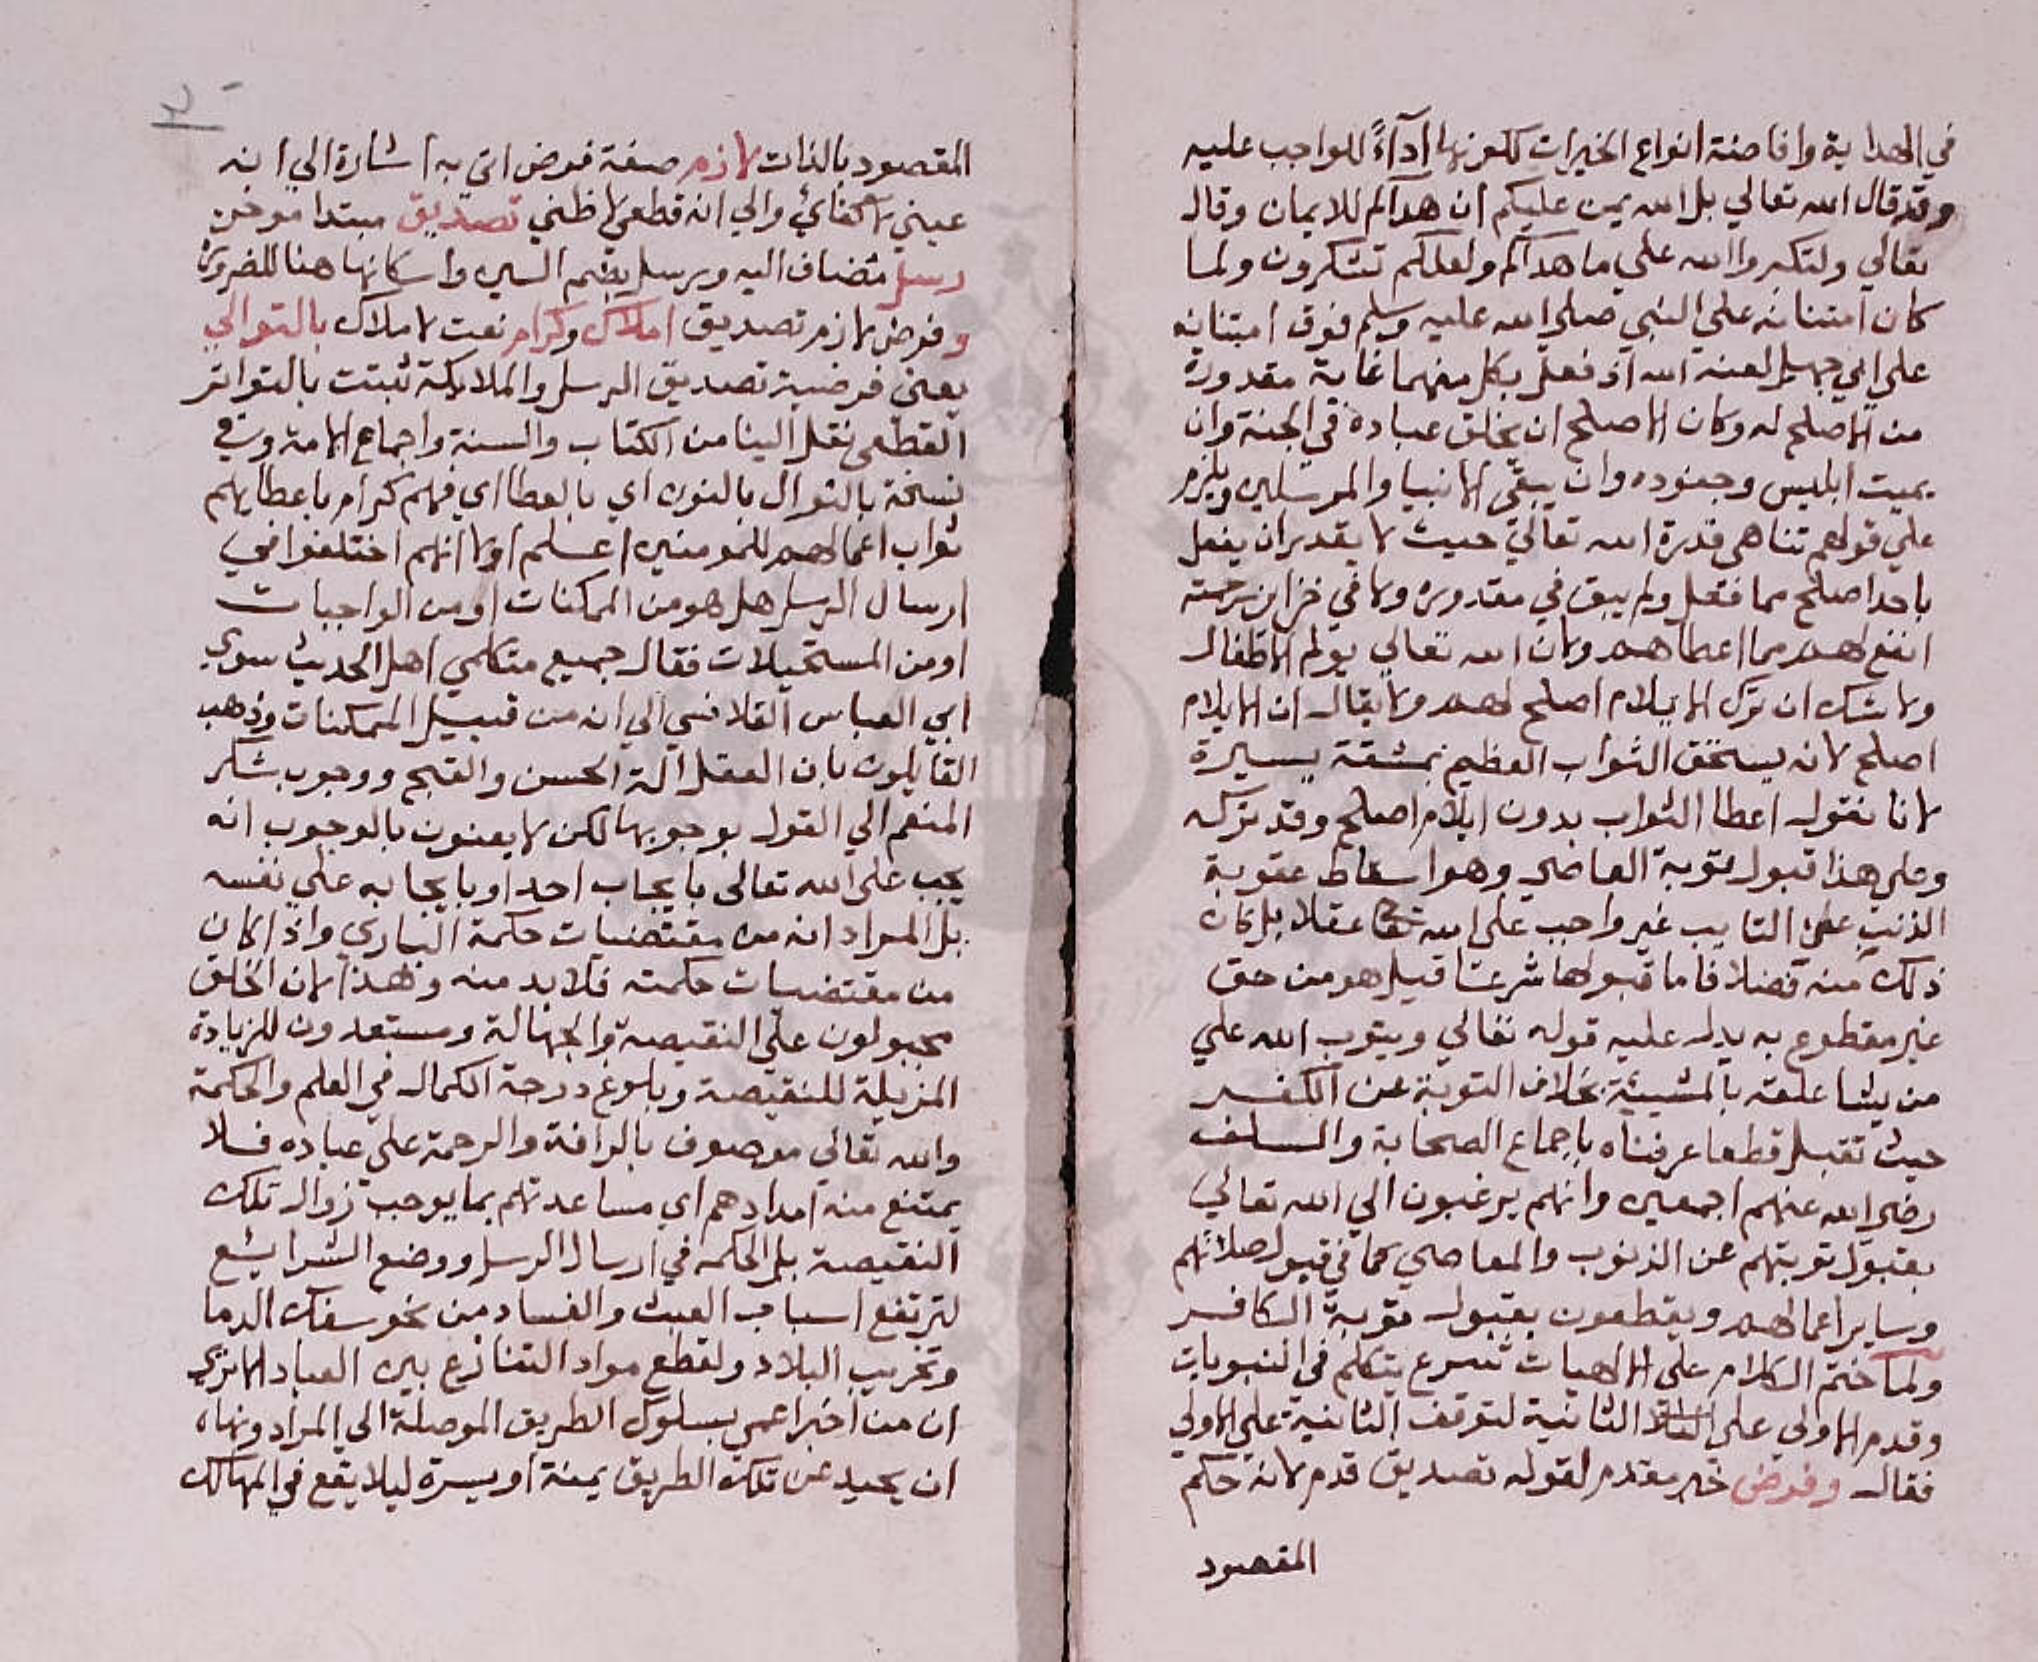 في الهداية وافاضة انواع الخيرات لكونها اداءً للواجب عليه
وقد قال الله تعالي بل الله يمن عليكم ان هداكم للايمان وقال
تعالي ولتكبروا الله علي ما هداكم ولعلكم تشكرون ولما
كان امتنانه علي النبي صلي الله عليه وسلم فوق امتنانه
علي ابي جهل لعنه الله اذ فعل بكل منهما غاية مقدورة
من الاصلح له وكان الاصلح ان يخلق عباده في الجنة وان
يميت ابليس وجنوده وان يبقي الانبيا والمرسلين ويلزم
علي قولهم تناهي قدرة الله تعالي حيث لا يقدر ان يفعل
باحد اصلح مما فعل ولم يبق في مقدوره ولا في خزاين رحمته
انفع لهم مما اعطاهم ولان الله تعالي يولم الاطفال
ولا شك ان ترك الايلام اصلح لهم ولا يقال ان الايلام
اصلح لانه يستحق الثواب العظيم بمشقة يسيرة
لانا نقول اعطا الثواب بدون ايلام اصلح وقد تركه
وعلي هذا قبول توبة العاصي وهو اسقاط عقوبة
الذنب علي التايب غير واجب علي الله تعا عقلا بل كان
ذلك منه فضلا فاما قبولها شرعا قيل هو من حق
غير مقطوع به يدل عليه قوله تعالي ويتوب الله علي
من يشا علقه بالمشيئة بخلاف التوبة عن الكفر
حيث تقبل قطعا عرفناه باجماع الصحابة والسلف
رضي الله عنهم اجمعين وانهم يرغبون الي الله تعالي
بقبول توبتهم عن الذنوب والمعاصي كما في قبول صلاتهم
وساير اعمالهم ويقطعون بقبول توبة الكافر
ولما ختم الكلام علي الالهيات شرع يتكلم في النبويات
وقدم الاولي علي الثانية لتوقف الثانية علي الاولي
فقال وفرض خبر مقدم لقوله تصديق قدم لانه حكم
المقصود
المقصود بالذات لازم صفة فرض اتي به اشارة الي انه
عيني لا كفائي والي انه قطعي لا ظني تصديق مبتدا موخر
رسل مضاف اليه ورسل بضم السين واسكانها هنا للضرورة
وفرض لازم تصديق املاك وكرام نعت لاملاك بالتوالي
يعني فرضية تصديق الرسل والملايكة ثبتت بالتواتر
القطعي نقل الينا من الكتاب والسنة واجماع الامة وفي
نسخة بالنوال بالنون اي بالعطا اي فهم كرام باعطايهم
ثواب اعمالهم للمومنين اعلم اولا انهم اختلفوا في
ارسال الرسل هل هو من الممكنات او من الواجبات
او من المستحيلات فقال جميع متكلمي اهل الحديث سوي
ابي العباس القلانسي الي انه من قبيل الممكنات وذهب
القايلون بان العقل آلة الحسن والقبح ووجوب شكر
المنعم الي القول بوجوبها لكن لا يعنون بالوجوب انه
يجب علي الله تعالي بايجاب احد او بايجابه علي نفسه
بل المراد انه من مقتضيات حكمة الباري واذا كان
من مقتضيات حكمته فلا بد منه وهذا لان الخلق
مجبولون علي النقيصة والجهالة ومستعدون للزيادة
المزيلة للنقيصة وبلوغ درجة الكمال في العلم والحكمة
والله تعالي موصوف بالرافة والرحمة علي عباده فلا
يمتنع منه امدادهم اي مساعدتهم بما يوجب زوال تلك
النقيصة بل الحكمة في ارسال الرسل ووضع الشرايع
لترتفع اسباب العبث والفساد من نحو سفك الدما
وتخريب البلاد ولقطع مواد التنازع بين العباد الا تري
ان من اخبر اعمي بسلوك الطريق الموصلة الي المراد ونهاه
ان يحيد عن تلك الطريق يمنة او يسرة ليلا يقع في المهالك